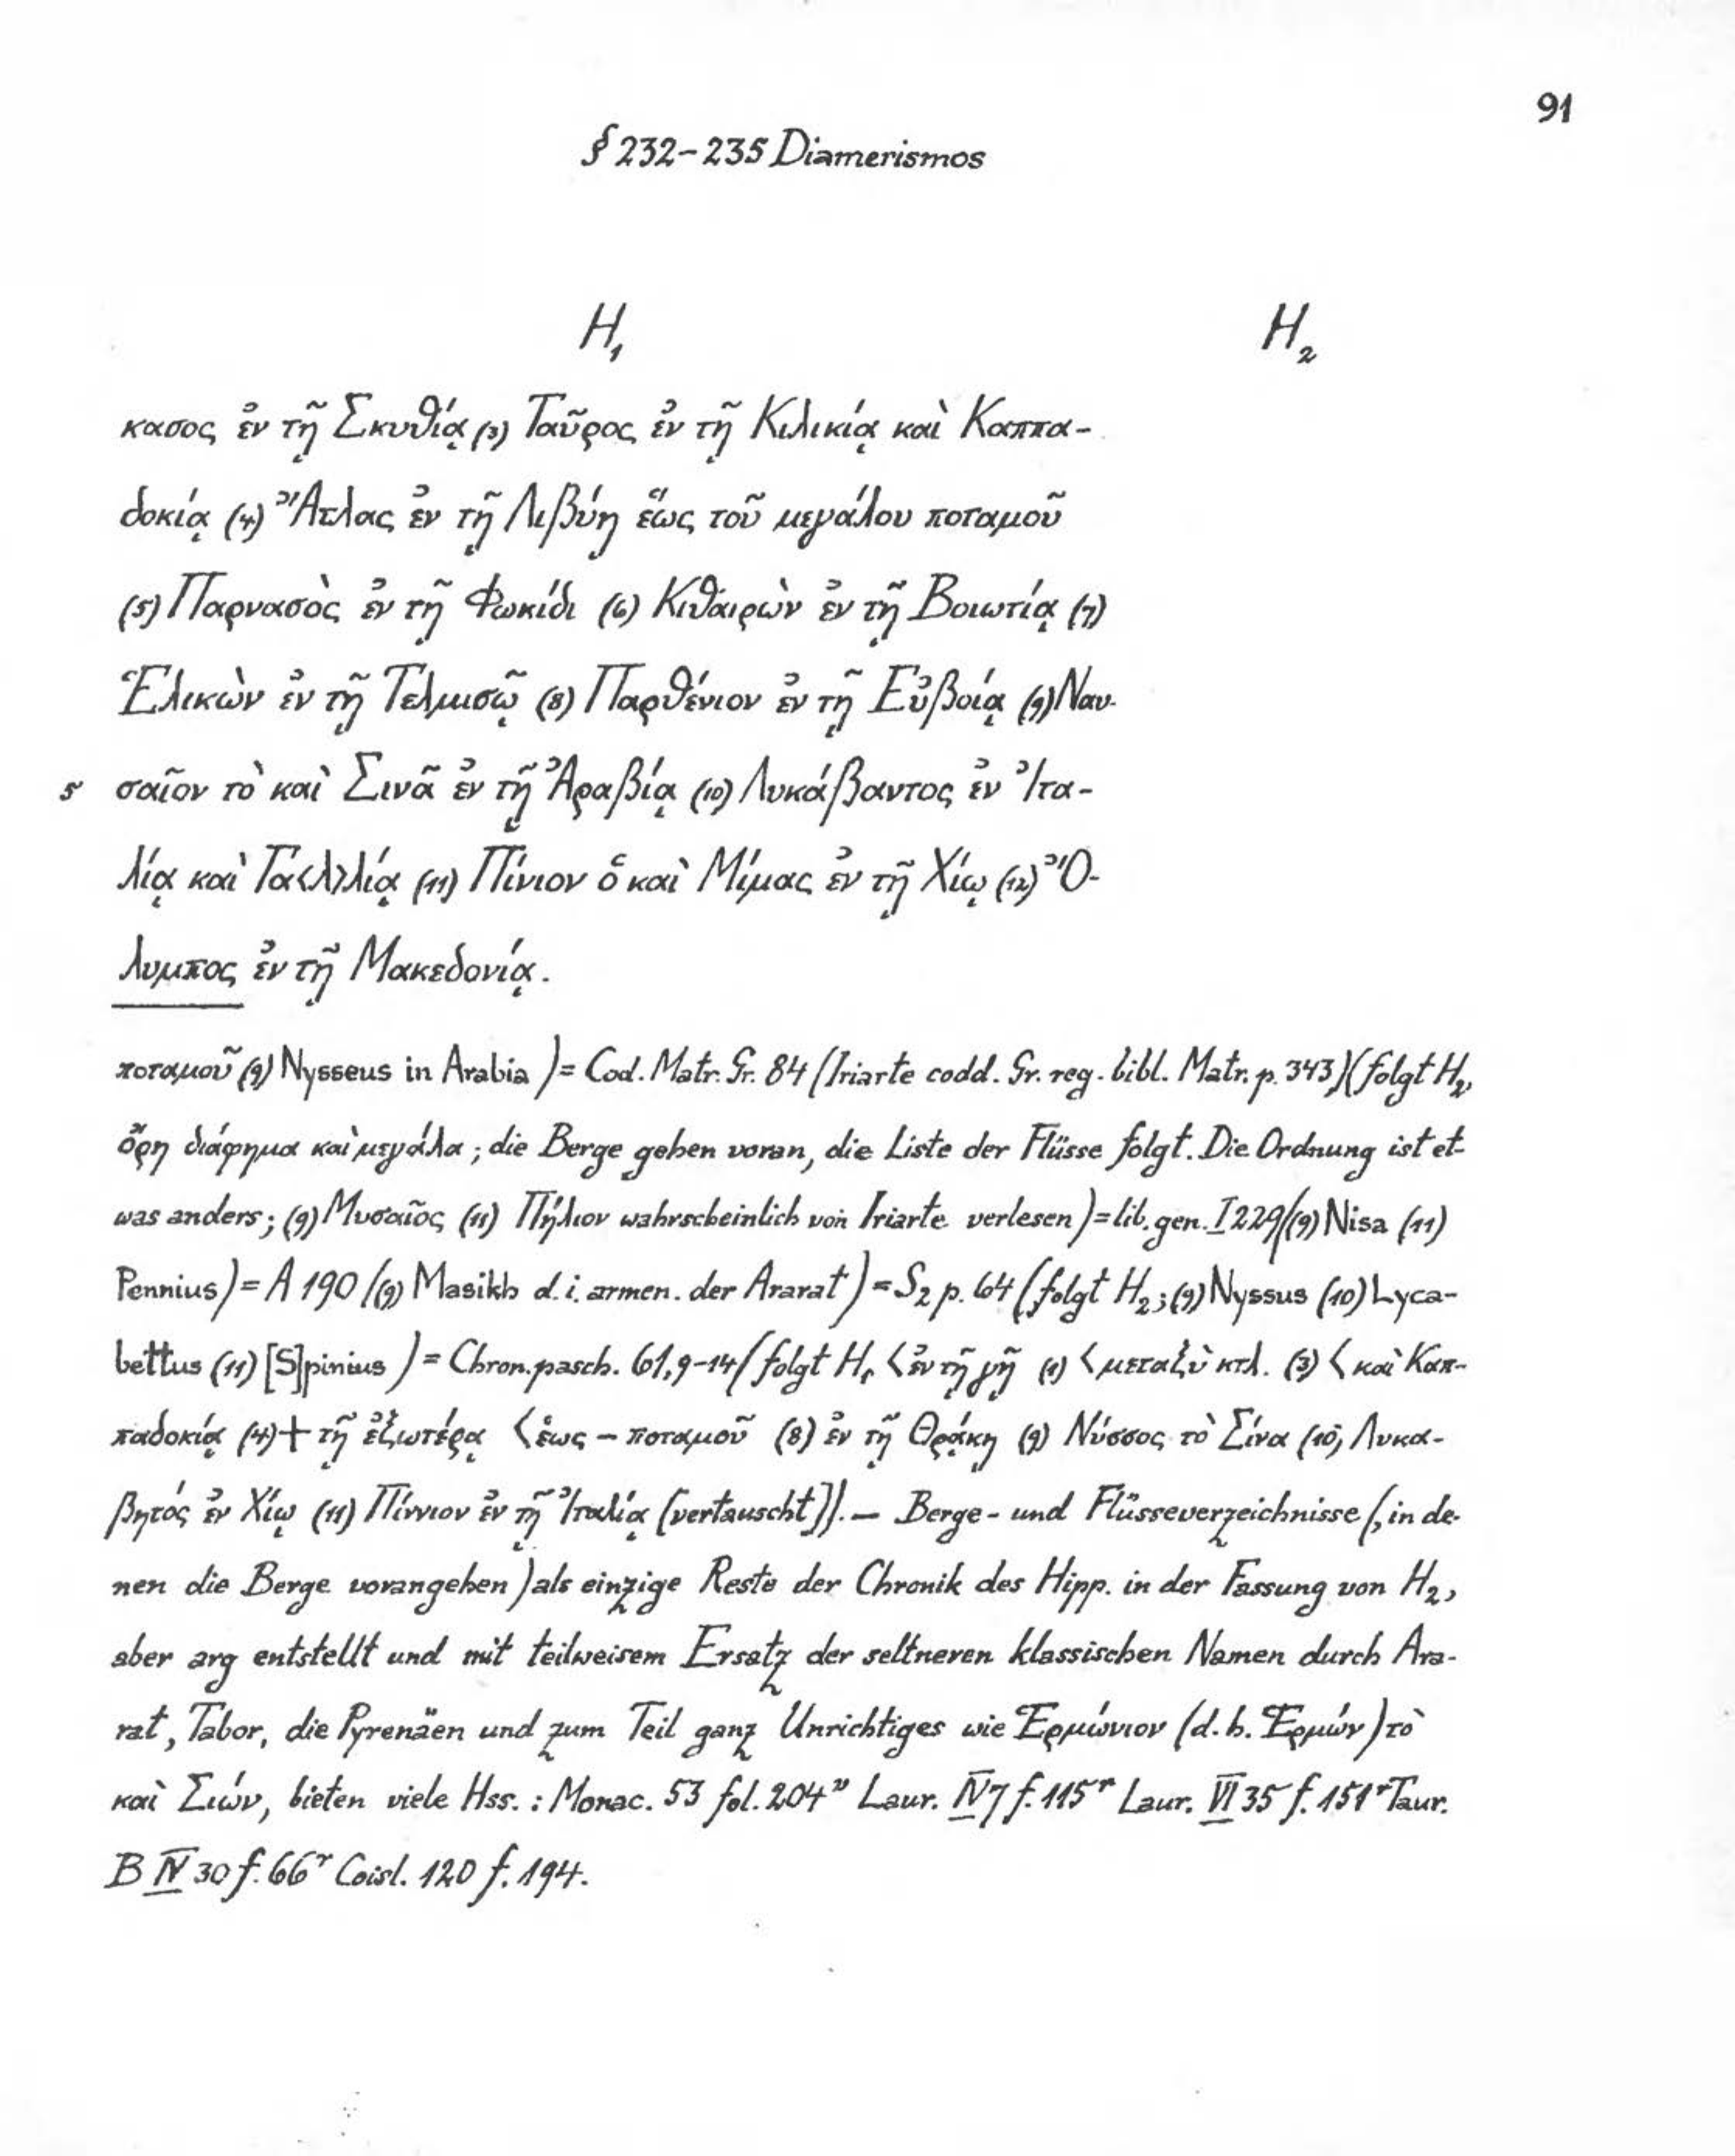 91
§ 232–235 Diamerismos
H₁ H₂
κασος ἐν τῇ Σκυθίᾳ (3) Ταῦρος ἐν τῇ Κιλικίᾳ καὶ Καππα-
δοκίᾳ (4) Ἄτλας ἐν τῇ Λιβύῃ ἕως τοῦ μεγάλου ποταμοῦ
(5) Παρνασὸς ἐν τῇ Φωκίδι (6) Κιθαιρὼν ἐν τῇ Βοιωτίᾳ (7)
Ἑλικὼν ἐν τῇ Τελμισῷ (8) Παρθένιον ἐν τῇ Εὐβοίᾳ (9) Ναυ-
5 σαῖον τὸ καὶ Σινᾶ ἐν τῇ Ἀραβίᾳ (10) Λυκάβαντος ἐν Ἰτα-
λίᾳ καὶ Γα<λ>λίᾳ (11) Πίνιον ὁ καὶ Μίμας ἐν τῇ Χίῳ (12) Ὄ-
λυμπος ἐν τῇ Μακεδονίᾳ.
ποταμοῦ (9) Nysseus in Arabia) = Cod. Matr. Gr. 84 (Iriarte codd. Gr. reg. bibl. Matr. p. 343) (folgt H₂,
ὄρη διάφημα καὶ μεγάλα; die Berge gehen voran, die Liste der Flüsse folgt. Die Ordnung ist et-
was anders; (9) Μυσαῖος (11) Πήλιον wahrscheinlich von Iriarte verlesen) = lib. gen. I 229 ((9) Nisa (11)
Pennius) = A 190 ((9) Masikh d. i. armen. der Ararat) = S₂ p. 64 (folgt H₂; (9) Nyssus (10) Lyca-
bettus (11) [S]pinius) = Chron. pasch. 61,9–14 (folgt H₁ < ἐν τῇ γῇ (1) < μεταξὺ κτλ. (3) < καὶ Καπ-
παδοκίᾳ (4) + τῇ ἐξωτέρᾳ < ἕως – ποταμοῦ (8) ἐν τῇ Θρᾴκῃ (9) Νύσσος τὸ Σίνα (10) Λυκα-
βητός ἐν Χίῳ (11) Πίννιον ἐν τῇ Ἰταλίᾳ [vertauscht]). — Berge- und Flüsseverzeichnisse (, in de-
nen die Berge vorangehen) als einzige Reste der Chronik des Hipp. in der Fassung von H₂,
aber arg entstellt und mit teilweisem Ersatz der seltneren klassischen Namen durch Ara-
rat, Tabor, die Pyrenäen und zum Teil ganz Unrichtiges wie Ἑρμώνιον (d. h. Ἑρμών) τὸ
καὶ Σιών, bieten viele Hss.: Monac. 53 fol. 204ᵛ Laur. IV 7 f. 115ʳ Laur. VI 35 f. 151ʳ Taur.
B IV 30 f. 66ʳ Coisl. 120 f. 194.